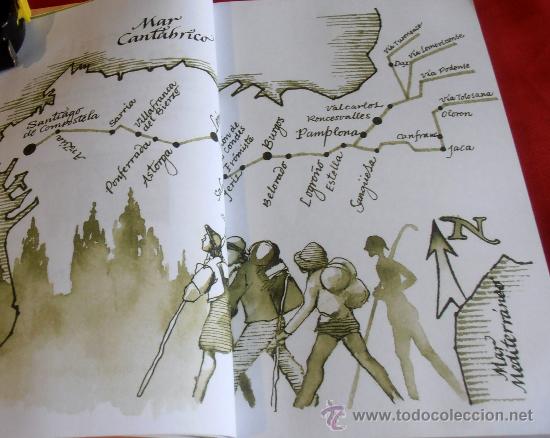 Mar
Cantábrico
Vía Turonense
Vía Lemovicense
Dax
Vía Podense
Vía Tolosana
Oloron
Valcarlos
Roncesvalles
Canfranc
Jaca
Pamplona
Sangüesa
Estella
Logroño
Belorado
Burgos
Villafranca
del Bierzo
Astorga
Sarria
Ponferrada
Santiago
de Compostela
Arzúa
N
Mar
Mediterráneo
www.todocoleccion.net